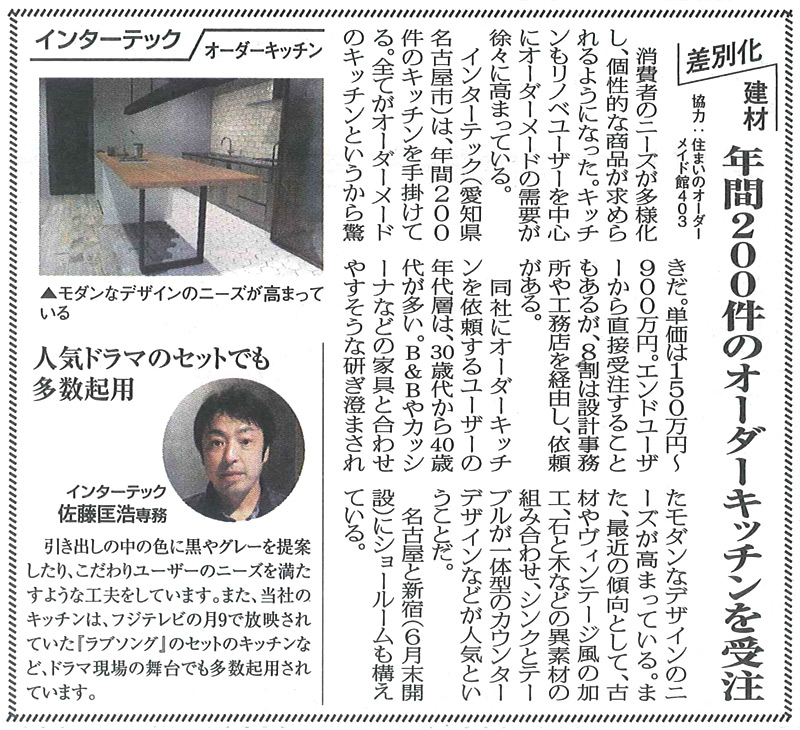 差別化
建材
協力：住まいのオーダー
メイド館403
年間200件のオーダーキッチンを受注
消費者のニーズが多様化
し、個性的な商品が求めら
れるようになった。キッチ
ンもリノベユーザーを中心
にオーダーメードの需要が
徐々に高まっている。
インターテック（愛知県
名古屋市）は、年間200
件のキッチンを手掛けて
る。全てがオーダーメード
のキッチンというから驚
きだ。単価は150万円～
900万円。エンドユーザ
ーから直接受注すること
もあるが、8割は設計事務
所や工務店を経由し、依頼
がある。
同社にオーダーキッチ
ンを依頼するユーザーの
年代層は、30歳代から40歳
代が多い。B&Bやカッシ
ーナなどの家具と合わせ
やすそうな研ぎ澄まされ
たモダンなデザインのニ
ーズが高まっている。ま
た、最近の傾向として、古
材やヴィンテージ風の加
工、石と木などの異素材の
組み合わせ、シンクとテー
ブルが一体型のカウンター
デザインなどが人気とい
うことだ。
名古屋と新宿（6月末開
設）にショールームも構え
ている。
インターテック
オーダーキッチン
▲モダンなデザインのニーズが高まって
いる
人気ドラマのセットでも
多数起用
インターテック
佐藤匡浩専務
引き出しの中の色に黒やグレーを提案
したり、こだわりユーザーのニーズを満た
すような工夫をしています。また、当社の
キッチンは、フジテレビの月9で放映され
ていた『ラブソング』のセットのキッチンな
ど、ドラマ現場の舞台でも多数起用され
ています。